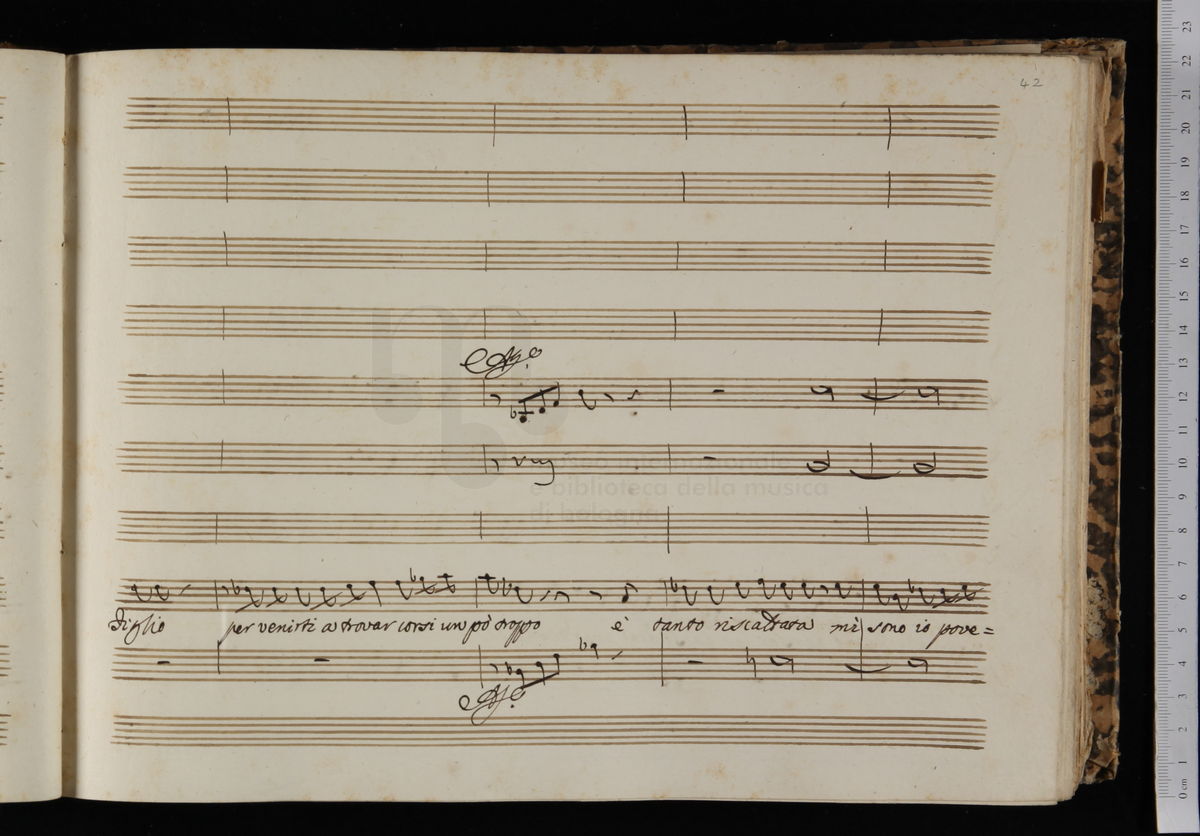 42
All.o
Figlio per venirti a trovar corsi un pò troppo è tanto riscaldata mi sono io pove=
All.o
e biblioteca della musica
di bologna
23
22
21
20
19
18
17
16
15
14
13
12
11
10
9
8
7
6
5
4
3
2
1
0 cm